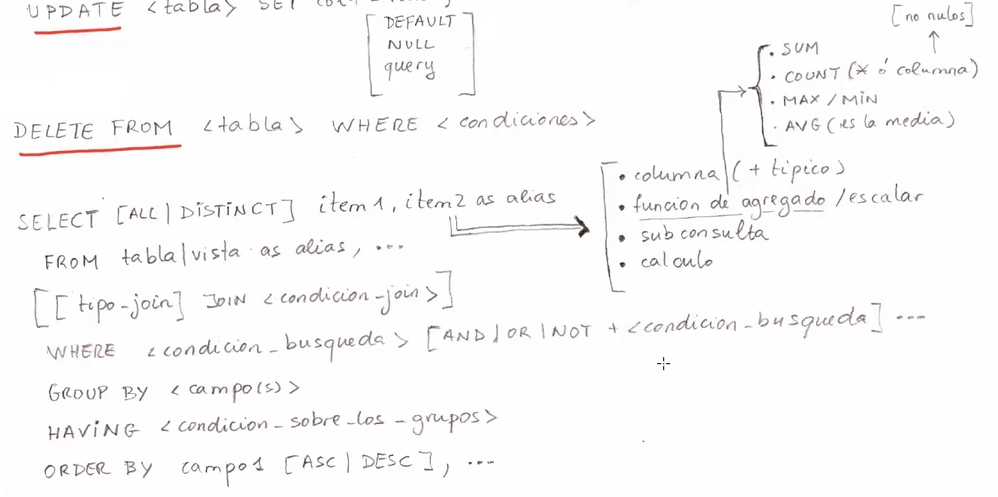 UPDATE <tabla> SET
DEFAULT
NULL
query
[no nulos]
• SUM
• COUNT (* ó columna)
• MAX / MIN
• AVG (es la media)
DELETE FROM <tabla> WHERE <condiciones>
• columna (+ tipico)
• funcion de agregado / escalar
• subconsulta
• calculo
SELECT [ALL | DISTINCT] item1, item2 as alias
FROM tabla | vista as alias, ...
[[tipo-join] JOIN <condicion-join>]
WHERE <condicion_busqueda> [AND | OR | NOT + <condicion_busqueda] ...
GROUP BY <campo(s)>
HAVING <condicion_sobre_los_grupos>
ORDER BY campo1 [ASC | DESC], ...